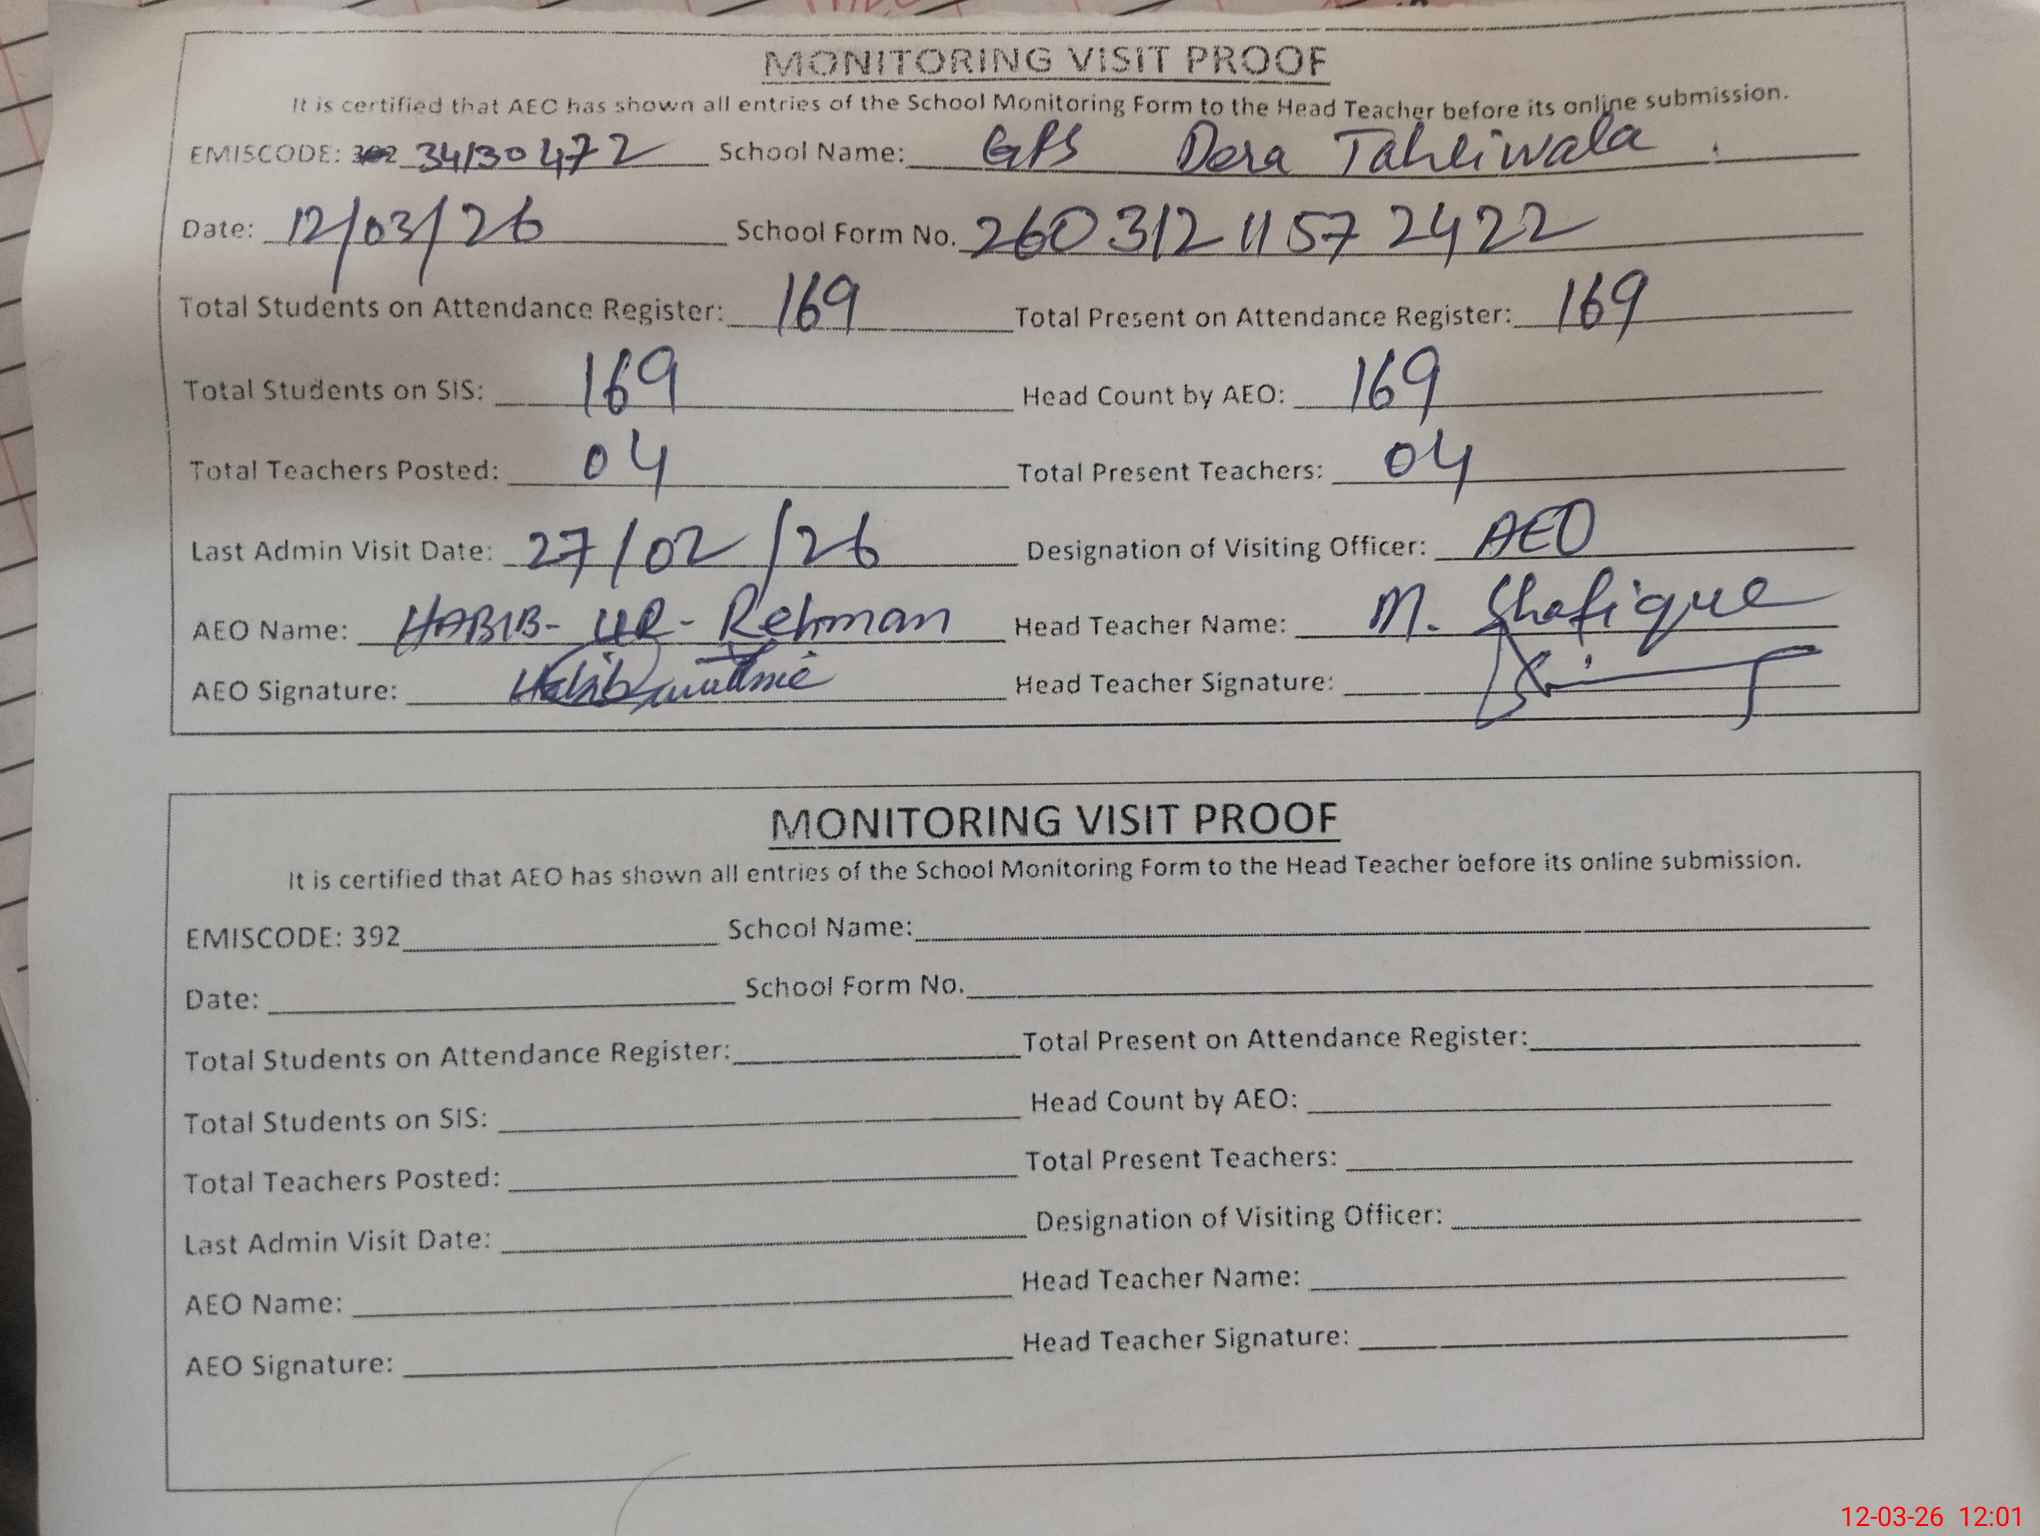 MONITORING VISIT PROOF
It is certified that AEO has shown all entries of the School Monitoring Form to the Head Teacher before its online submission.
EMISCODE: 392 34130472 School Name: GPS Dera Tahliwala
Date: 12/03/26 School Form No. 260312 1157 2422
Total Students on Attendance Register: 169 Total Present on Attendance Register: 169
Total Students on SIS: 169 Head Count by AEO: 169
Total Teachers Posted: 04 Total Present Teachers: 04
Last Admin Visit Date: 27/02/26 Designation of Visiting Officer: AEO
AEO Name: HABIB-UR-Rehman Head Teacher Name: M. Shafique
AEO Signature: Head Teacher Signature:
MONITORING VISIT PROOF
It is certified that AEO has shown all entries of the School Monitoring Form to the Head Teacher before its online submission.
EMISCODE: 392 School Name:
Date: School Form No.
Total Students on Attendance Register: Total Present on Attendance Register:
Total Students on SIS: Head Count by AEO:
Total Teachers Posted: Total Present Teachers:
Last Admin Visit Date: Designation of Visiting Officer:
AEO Name: Head Teacher Name:
AEO Signature: Head Teacher Signature:
12-03-26 12:01